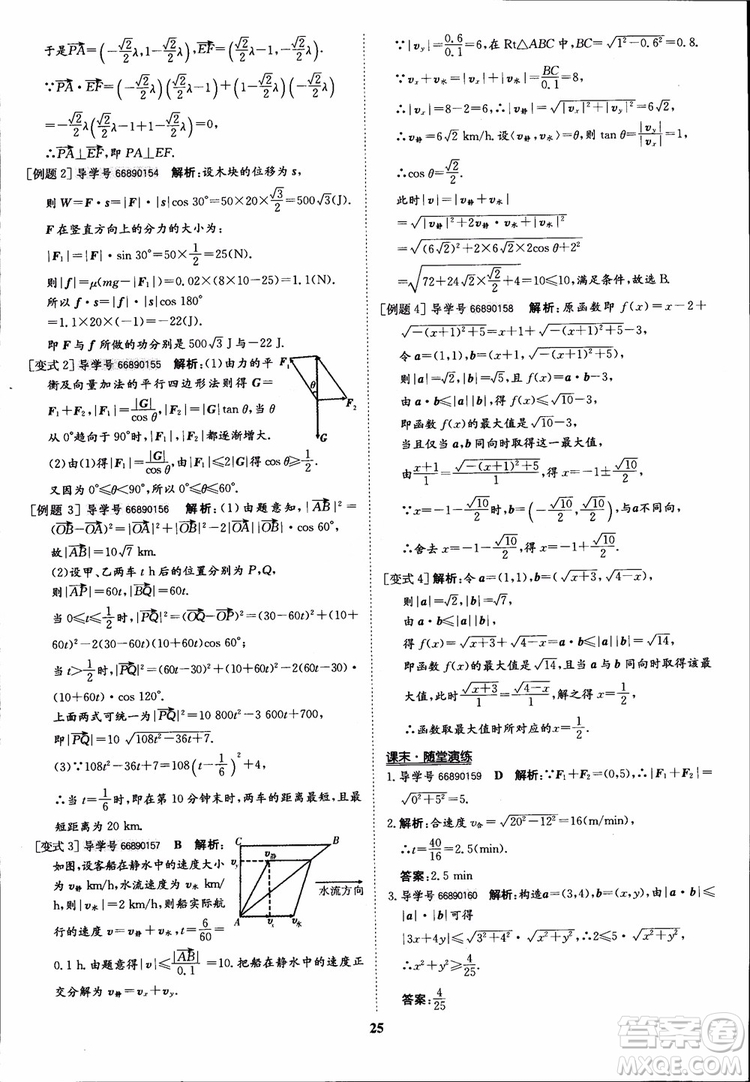 于是PA=(-√2/2λ, √2/2λ), EF=(√2/2λ-1, √2/2λ).
∵PA·EF=(-√2/2λ)(√2/2λ-1)+(-√2/2λ)(-√2/2λ)
=-√2/2λ(√2/2λ-1+1-√2/2λ)=0,
∴PA⊥EF,即PA⊥EF.
[例题2] 导学号 66890154 解析:设木块的位移为s,
则W=F·s=|F|·|s|cos 30°=50×20×√3/2=500√3(J).
F在竖直方向上的分力的大小为:
|F₁|=|F|·sin 30°=50×1/2=25(N).
则|f|=μ(mg-|F₁|)=0.02×(8×10-25)=1.1(N).
所以f·s=|f|·|s|cos 180°
=1.1×20×(-1)=-22(J).
即F与f所做的功分别为500√3 J与-22 J.
[变式2] 导学号 66890155 解析:(1)由力的平
衡及向量加法的平行四边形法则得G=
F₁+F₂,|F₁|=|G|/cos θ,|F₂|=|G|tan θ,当θ
从0°趋向于90°时,|F₁|,|F₂|都逐渐增大.
(2)由(1)得|F₁|=|G|/cos θ≤2|G|,∴cos θ≥1/2.
又因为0°≤θ<90°,所以0°≤θ≤60°.
F₁
θ
F₂
G
[例题3] 导学号 66890156 解析:(1)由题意知,|AB|²=
(OB-OA)²=|OA|²+|OB|²-2|OA||OB|·cos 60°,
故|AB|=10√7 km.
(2)设甲、乙两车t h后的位置分别为P,Q,
则|AP|=60t,|BQ|=60t.
当0≤t≤1/2时,|PQ|²=(OQ-OP)²=(30-60t)²+(10+
60t)²-2(30-60t)(10+60t)·cos 60°;
当t>1/2时,|PQ|²=(60t-30)²+(10+60t)²-2(60t-30)·
(10+60t)·cos 120°.
上面两式可统一为|PQ|²=10 800t²-3 600t+700,
即|PQ|=10√(108t²-36t+7).
(3)∵108t²-36t+7=108(t-1/6)²+4,
∴当t=1/6时,即在第10分钟末时,两车的距离最短,且最
短距离为20 km.
[变式3] 导学号 66890157 B 解析:
如图,设客船在静水中的速度大小
为|v静| km/h,水流速度大小为|v水| km/
h,则|v水|=2 km/h,则船实际航
行的速度v=v静+v水,t=6/60=
0.1 h.由题意得|v|≤|AB|/0.1=10.把船在静水中的速度正
交分解为v静=vx+vy,
C
B
vy
v静
v
水流方向
A
vx
v水
∵|vy|=0.6/0.1=6,∴在Rt△ABC中,BC=√(1²-0.6²)=0.8.
∵vx+v水=|vx|+|v水|=BC/0.1=8,
∴|vx|=8-2=6,∴|v静|=√(|vx|²+|vy|²)=6√2,
∴v静=6√2 km/h.设〈v静,v水〉=θ,则tan θ=|vy|/|vx|=1,
∴cos θ=√2/2.
此时|v|=|v静+v水|=√(v静²+2v静·v水+v水²)
=√(|v静|²+2|v静||v水|cos θ+|v水|²)
=√((6√2)²+2×6√2×2cos θ+2²)
=√(72+24√2×√2/2+4)≤10≤10,满足条件,故选B.
[例题4] 导学号 66890158 解析:原函数即f(x)=x-2+
√(-(x+1)²+5)=(x+1)+√(-(x+1)²+5)-3,
令a=(1,1),b=(x+1,√(-(x+1)²+5)),
则|a|=√2,|b|=√5,且f(x)=a·b-3.
由a·b≤|a||b|,得f(x)≤√10-3,
即函数f(x)的最大值是√10-3,
当且仅当a与b同向时取得最大值.
由(x+1)/1=√(-(x+1)²+5)/1,得x=-1±√10/2.
∵x=-1-√10/2时,b=(-√10/2,√10/2)不满足题意,
∴舍去x=-1-√10/2,∴x=-1+√10/2.
[变式4] 解析:令a=(1,1),b=(√(x+3),√(4-x)),
则|a|=√2,|b|=√7,f(x)=a·b.
∵a·b≤|a||b|=√14,
得f(x)=√(x+3)+√(4-x)≤√14,
即函数f(x)的最大值是√14,当且仅当a与b同向时取得最
大值,此时√(x+3)/1=√(4-x)/1,解之得x=1/2,
∴函数取最大值时所对应的x=1/2.
课末·随堂演练
1. 导学号 66890159 D 解析:∵F₁+F₂=(0,5),∴|F₁+F₂|=
√(0²+5²)=5.
2. 解析:合速度v合=√(20²-12²)=16(m/min),
∴t=40/16=2.5(min).
答案:2.5 min
3. 导学号 66890160 解析:构造a=(3,4),b=(x,y),由|a·b|≤
|a|·|b|可得
|3x+4y|≤√(3²+4²)·√(x²+y²),∴2≤5·√(x²+y²),
∴x²+y²≥4/25.
答案:4/25
25
答案圈